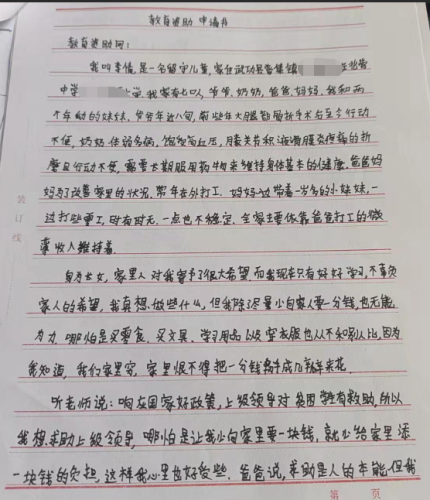 教育救助申请书
教育救助网：
我叫李倩，是一名留守儿童，家住武功县普集镇
中学 小学，我家有七口人，爷爷、奶奶，爸爸，妈妈，我和两
个年幼的妹妹，爷爷年近八旬，前些年大腿股骨折手术后至今行动
不便，奶奶体弱多病，饱受高血压，膝关节积液滑膜炎疼痛的折
磨且行动不便，需要长期服用药物来维持身体基本的健康，爸爸妈
妈为了改善家里的状况，常年在外打工，妈妈一边带着一岁多的小妹妹，一
边打些零工，时有时无，一点也不稳定，全家主要依靠爸爸打工的微
薄收入维持着。
身为长女，家里人对我寄予了很大希望，而我现在只有好好学习，不辜负
家人的希望，我真想做些什么，但我除了尽量少向家人要一分钱，也无能
为力，哪怕是买零食、买文具、学习用品以及穿衣服也从不和别人比，因为
我知道，我们家里穷，家里恨不得把一分钱掰成几瓣来花。
听老师说：响应国家好政策，上级领导对贫困学生有救助，所以
我想求助上级领导，哪怕是让我少向家里要一块钱，就少给家里添
一块钱的负担，这样我心里也好受些。爸爸说，求助是人的本能，但我
装订线
第 页